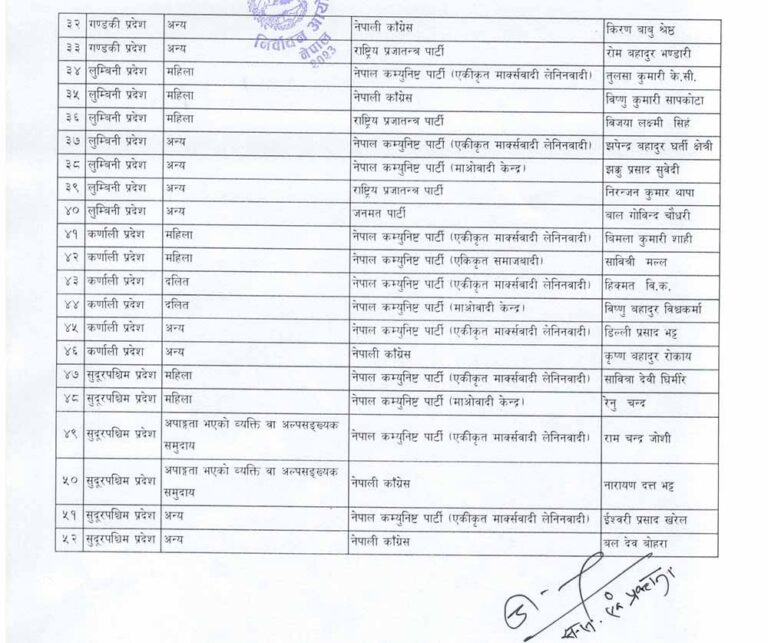 निर्वाचन आयोग
नेपाल
२०१३
३२ गण्डकी प्रदेश अन्य नेपाली काँग्रेस किरण बाबु श्रेष्ठ
३३ गण्डकी प्रदेश अन्य राष्ट्रिय प्रजातन्त्र पार्टी रोम बहादुर भण्डारी
३४ लुम्बिनी प्रदेश महिला नेपाल कम्युनिष्ट पार्टी (एकीकृत मार्क्सवादी लेनिनवादी) तुलसा कुमारी के.सी.
३५ लुम्बिनी प्रदेश महिला नेपाली काँग्रेस विष्णु कुमारी सापकोटा
३६ लुम्बिनी प्रदेश महिला राष्ट्रिय प्रजातन्त्र पार्टी विजया लक्ष्मी सिहं
३७ लुम्बिनी प्रदेश अन्य नेपाल कम्युनिष्ट पार्टी (एकीकृत मार्क्सवादी लेनिनवादी) झपेन्द्र बहादुर घर्ती क्षेत्री
३८ लुम्बिनी प्रदेश अन्य नेपाल कम्युनिष्ट पार्टी (माओवादी केन्द्र) झक्कु प्रसाद सुवेदी
३९ लुम्बिनी प्रदेश अन्य राष्ट्रिय प्रजातन्त्र पार्टी निरन्जन कुमार थापा
४० लुम्बिनी प्रदेश अन्य जनमत पार्टी बाल गोविन्द चौधरी
४१ कर्णाली प्रदेश महिला नेपाल कम्युनिष्ट पार्टी (एकीकृत मार्क्सवादी लेनिनवादी) बिमला कुमारी शाही
४२ कर्णाली प्रदेश महिला नेपाल कम्युनिष्ट पार्टी (एकिकृत समाजवादी) सावित्री मल्ल
४३ कर्णाली प्रदेश दलित नेपाल कम्युनिष्ट पार्टी (एकीकृत मार्क्सवादी लेनिनवादी) हिक्मत बि.क.
४४ कर्णाली प्रदेश दलित नेपाल कम्युनिष्ट पार्टी (माओवादी केन्द्र) विष्णु बहादुर विश्वकर्मा
४५ कर्णाली प्रदेश अन्य नेपाल कम्युनिष्ट पार्टी (एकीकृत मार्क्सवादी लेनिनवादी) डिल्ली प्रसाद भट्ट
४६ कर्णाली प्रदेश अन्य नेपाली काँग्रेस कृष्ण बहादुर रोकाय
४७ सुदूरपश्चिम प्रदेश महिला नेपाल कम्युनिष्ट पार्टी (एकीकृत मार्क्सवादी लेनिनवादी) सावित्रा देवी घिमीरे
४८ सुदूरपश्चिम प्रदेश महिला नेपाल कम्युनिष्ट पार्टी (माओवादी केन्द्र) रेनु चन्द
४९ सुदूरपश्चिम प्रदेश अपाङ्गता भएको व्यक्ति वा अल्पसङ्ख्यक
समुदाय नेपाल कम्युनिष्ट पार्टी (एकीकृत मार्क्सवादी लेनिनवादी) राम चन्द्र जोशी
५० सुदूरपश्चिम प्रदेश अपाङ्गता भएको व्यक्ति वा अल्पसङ्ख्यक
समुदाय नेपाली काँग्रेस नारायण दत्त भट्ट
५१ सुदूरपश्चिम प्रदेश अन्य नेपाल कम्युनिष्ट पार्टी (एकीकृत मार्क्सवादी लेनिनवादी) ईश्वरी प्रसाद खरेल
५२ सुदूरपश्चिम प्रदेश अन्य नेपाली काँग्रेस बल देव बोहरा